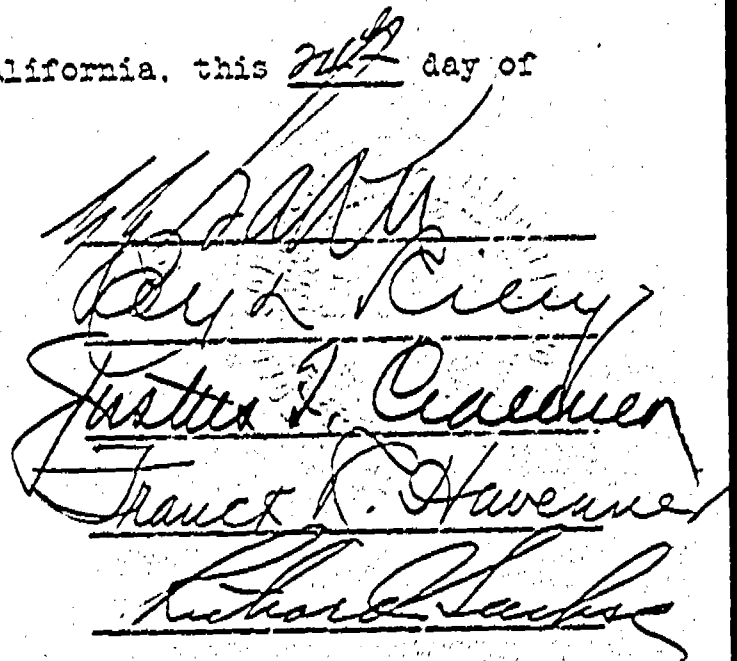 alifornia, this day of
Baker
Ray L Riley
Justus F. Craemer
Franck R. Havenner
Richard Sachse